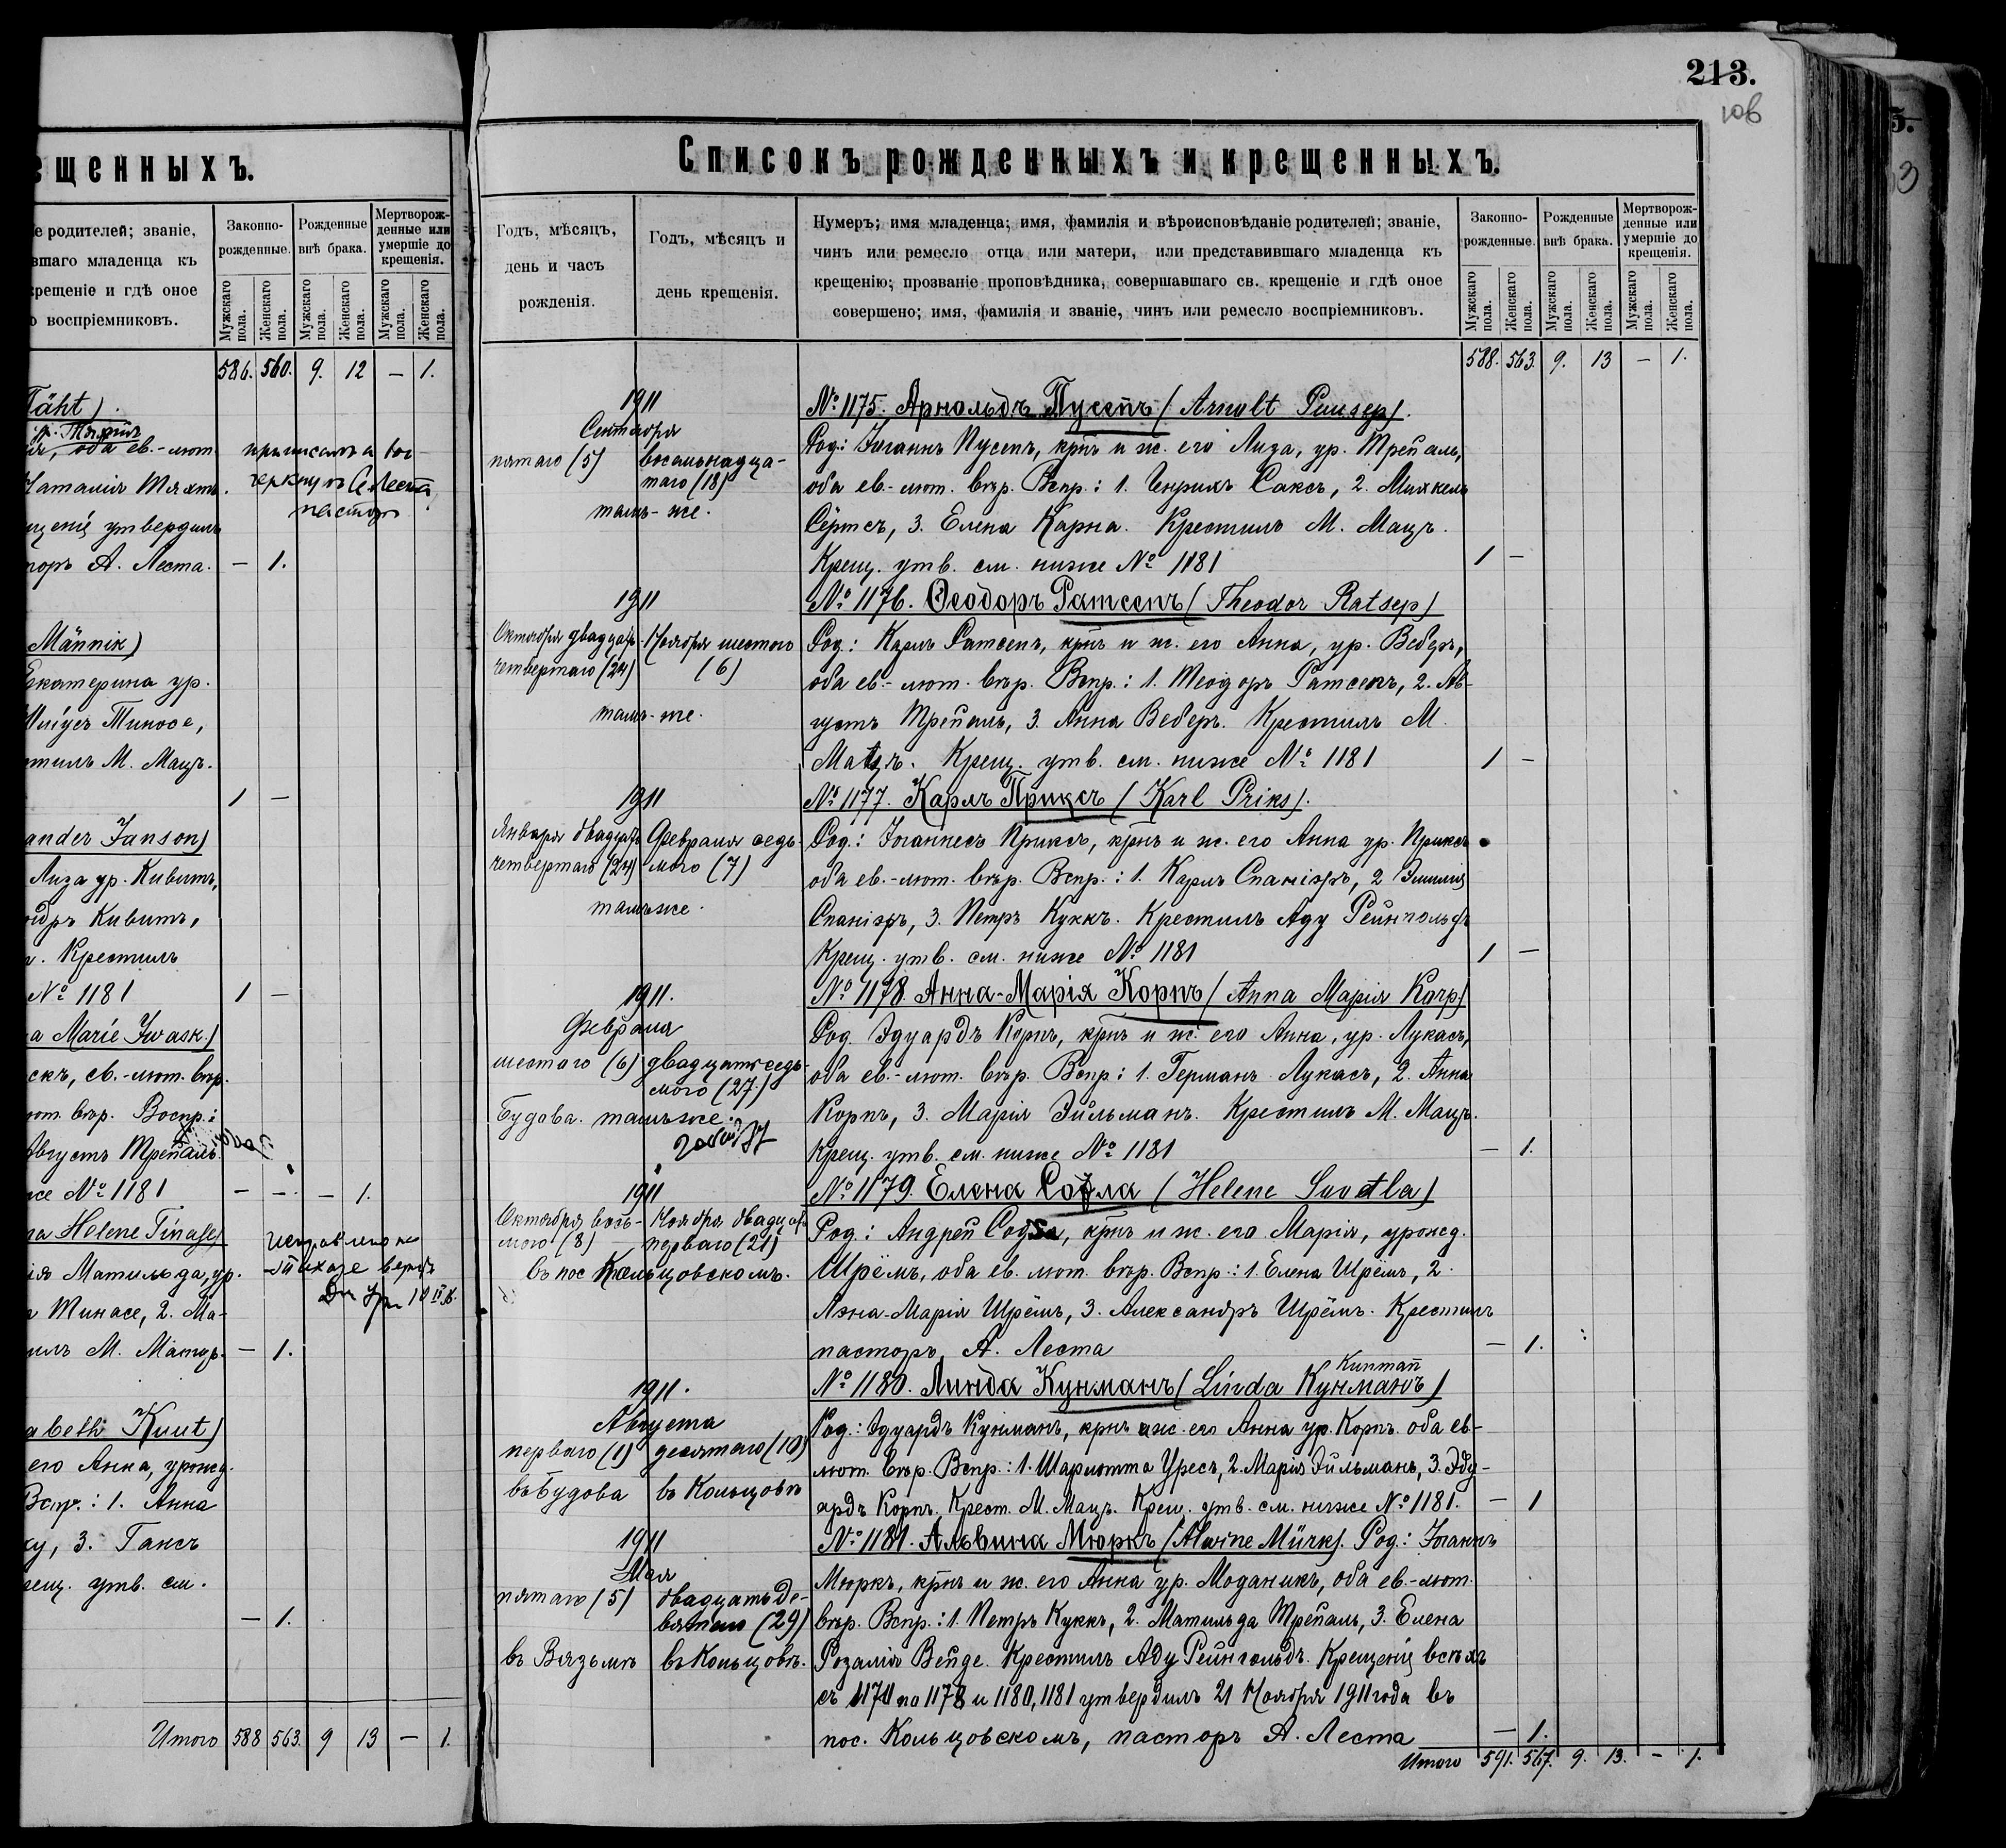 213.
106
5.
3
ещенныхъ.
е родителей; званіе,
вшаго младенца къ
крещеніе и гдѣ оное
о воспріемниковъ.
Законно-
рожденные.
Рожденные
внѣ брака.
Мертворож-
денные или
умершіе до
крещенія.
Мужскаго пола.
Женскаго пола.
Мужскаго пола.
Женскаго пола.
Мужскаго пола.
Женскаго пола.
586. 560. 9. 12 — 1.
Täht).
ур. Тяхтъ
оба ев.-лют.
Наталія Тяхтъ.
щеніе утвердилъ
торъ А. Леста. — 1.
Männik)
Екатерина ур.
Тиносе,
тилъ М. Мацъ.
1 —
ander Janson)
Лиза ур. Кивитъ,
ндръ Кивитъ,
Крестилъ
№ 1181 1 —
a Marie Iwask.)
скъ, ев.-лют. вѣр.
лют. вѣр. Воспр.:
Августъ Трепаль.
же № 1181 — — — 1.
na Helene Tinase)
ія Матильда, ур.
Тинасе, 2. Ма-
илъ М. Матзъ. — 1.
abeth Kuut)
его Анна, урожд.
Вспр.: 1. Анна
ку, 3. Гансъ
рещ. утв. см.
— 1.
Итого 588 563. 9 13 — 1.
Списокъ рожденныхъ и крещенныхъ.
Годъ, мѣсяцъ,
день и часъ
рожденія.
Годъ, мѣсяцъ и
день крещенія.
Нумеръ; имя младенца; имя, фамилія и вѣроисповѣданіе родителей; званіе,
чинъ или ремесло отца или матери, или представившаго младенца къ
крещенію; прозваніе проповѣдника, совершавшаго св. крещеніе и гдѣ оное
совершено; имя, фамилія и званіе, чинъ или ремесло воспріемниковъ.
Законно-
рожденные.
Рожденные
внѣ брака.
Мертворож-
денные или
умершіе до
крещенія.
Мужскаго пола.
Женскаго пола.
Мужскаго пола.
Женскаго пола.
Мужскаго пола.
Женскаго пола.
588. 563. 9. 13 — 1.
1911 №1175. Арнольдъ Пусепъ (Arnolt Puusep).
Сентября
Род: Іоганнъ Пусепъ, крнъ и ж. его Лиза, ур. Трепаль,
пятаго (5) восемьнадца-
таго (18)
оба ев.-лют. вѣр. Вспр.: 1. Генрихъ Саксъ, 2. Михкель
тамъ-же.
Сёртсъ, 3. Елена Карна. Крестилъ М. Мацъ.
Крещ. утв. см. ниже № 1181 1 —
1911 № 1176. Ѳеодоръ Ратсепъ (Theodor Ratsep)
Октября двадцать Ноября шестого
Род.: Карлъ Ратсепъ, крнъ и ж. его Анна, ур. Веберъ,
четвертаго (24) (6)
оба ев.-лют. вѣр. Вспр.: 1. Теодоръ Ратсепъ, 2. Ав-
тамъ-же.
густъ Трепаль, 3. Анна Веберъ. Крестилъ М.
Матзъ. Крещ. утв. см. ниже № 1181 1 —
1911 № 1177. Карлъ Приксъ (Karl Priks).
Января двадцать Февраля седь-
Род.: Іоганнесъ Приксъ, крнъ и ж. его Анна ур. Приксъ
четвертаго (24) мого (7)
оба ев.-лют. вѣр. Вспр.: 1. Карлъ Спаніэръ, 2 Эмилія
тамъже.
Спаніэръ, 3. Петръ Куккъ. Крестилъ Аду Рейнгольдъ
Крещ. утв. см. ниже № 1181 1 —
1911. № 1178. Анна-Марія Корпъ (Anna Марія Korp)
Февраля
Род. Эдуардъ Корпъ, крнъ и ж. его Анна, ур. Лукасъ,
шестого (6) двадцать седь-
мого (27)
оба ев.-лют. вѣр. Вспр: 1. Германъ Лукасъ, 2. Анна
Будова. тамъже.
Корпъ, 3. Марія Эйльманъ. Крестилъ М. Мацъ.
Крещ. утв. см. ниже № 1181 — 1.
1911 № 1179. Елена Содла (Helene Sootla)
Октября вось- Ноября двадцать
мого (8) перваго (21)
Род.: Андрей Содла, крнъ и ж. его Марія, урожд.
въ пос Кольцовскомъ.
Шрёмъ, оба ев. лют. вѣр. Вспр.: 1. Елена Шрёмъ, 2.
Анна-Марія Шрёмъ, 3. Александръ Шрёмъ. Крестилъ
пасторъ А. Леста — 1.
Kunmann
1911. № 1180. Линда Кунманъ (Linda Кунманъ)
Августа
Род.: Эдуардъ Кунманъ, крнъ и ж. его Анна ур. Корпъ. оба ев-
перваго (1) десятаго (10)
лют. вѣр. Вспр.: 1. Шарлотта Уресъ, 2. Марія Эйльманъ, 3. Эду-
въ Будова въ Кольцовѣ
ардъ Корпъ. Крест. М. Мацъ. Крещ. утв. см. ниже № 1181. — 1
1911 № 1181. Альвина Мюркъ (Alwine Mürk). Род.: Іоганнъ
Мая
Мюркъ, крнъ и ж. его Анна ур. Моданикъ, оба ев.-лют.
пятаго (5) двадцать де-
вятаго (29)
вѣр. Вспр.: 1. Петръ Куккъ, 2. Матильда Трепаль, 3. Елена
въ Вязьмѣ въ Кольцовѣ.
Розалія Вейде. Крестилъ Аду Рейнгольдъ. Крещеніе всѣхъ
съ 1170 по 1178 и 1180, 1181 утвердилъ 21 Ноября 1911 года въ
пос. Кольцовскомъ, пасторъ А. Леста — 1.
Итого 591. 567. 9. 13. — 1.